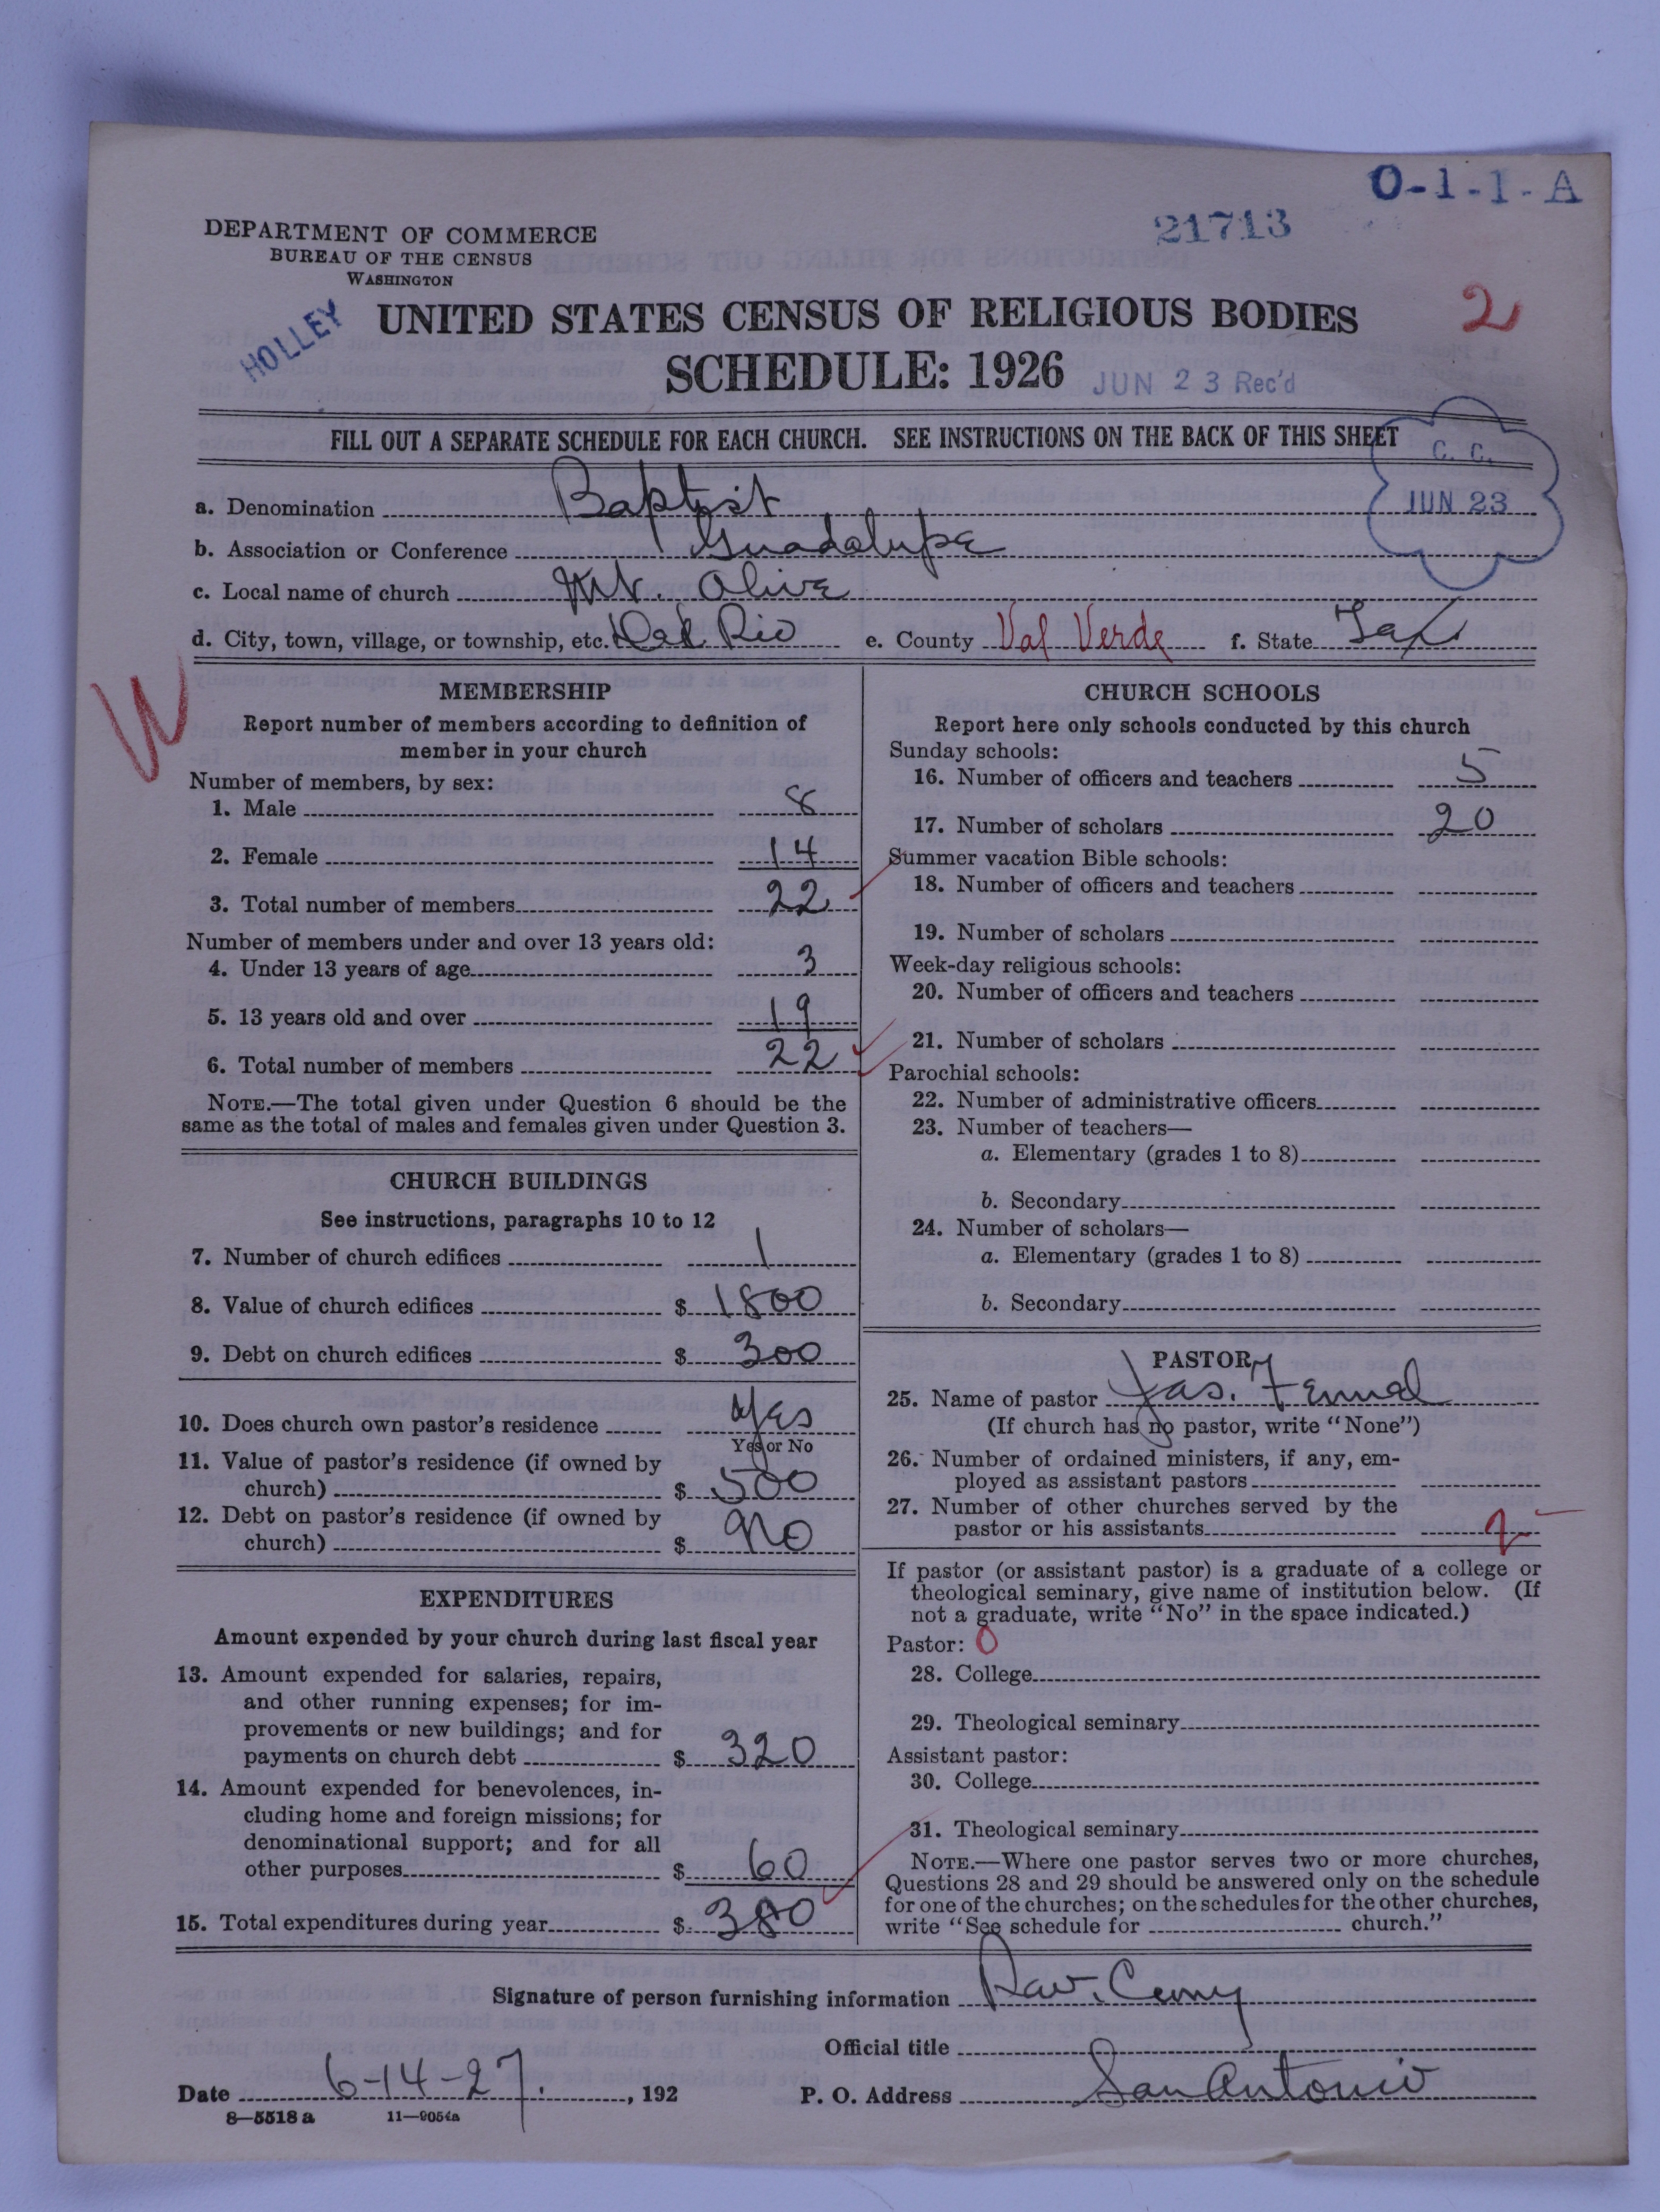 O-1-1-A
21713
DEPARTMENT OF COMMERCE
BUREAU OF THE CENSUS
WASHINGTON
HOLLEY
UNITED STATES CENSUS OF RELIGIOUS BODIES
2
SCHEDULE: 1926 JUN 23 Rec'd
FILL OUT A SEPARATE SCHEDULE FOR EACH CHURCH. SEE INSTRUCTIONS ON THE BACK OF THIS SHEET
C. C.
JUN 23
a. Denomination Baptist
b. Association or Conference Guadalupe
c. Local name of church Mt. Olive
d. City, town, village, or township, etc. Del Rio e. County Val Verde f. State Tex
W
MEMBERSHIP
Report number of members according to definition of
member in your church
Number of members, by sex:
1. Male 8
2. Female 14
3. Total number of members 22
Number of members under and over 13 years old:
4. Under 13 years of age 3
5. 13 years old and over 19
6. Total number of members 22
NOTE.—The total given under Question 6 should be the
same as the total of males and females given under Question 3.
CHURCH BUILDINGS
See instructions, paragraphs 10 to 12
7. Number of church edifices 1
8. Value of church edifices $ 1800
9. Debt on church edifices $ 300
10. Does church own pastor's residence Yes
Yes or No
11. Value of pastor's residence (if owned by
church) $ 500
12. Debt on pastor's residence (if owned by
church) $ No
EXPENDITURES
Amount expended by your church during last fiscal year
13. Amount expended for salaries, repairs,
and other running expenses; for im-
provements or new buildings; and for
payments on church debt $ 320
14. Amount expended for benevolences, in-
cluding home and foreign missions; for
denominational support; and for all
other purposes $ 60
15. Total expenditures during year $ 380
CHURCH SCHOOLS
Report here only schools conducted by this church
Sunday schools:
16. Number of officers and teachers 5
17. Number of scholars 20
Summer vacation Bible schools:
18. Number of officers and teachers
19. Number of scholars
Week-day religious schools:
20. Number of officers and teachers
21. Number of scholars
Parochial schools:
22. Number of administrative officers
23. Number of teachers—
a. Elementary (grades 1 to 8)
b. Secondary
24. Number of scholars—
a. Elementary (grades 1 to 8)
b. Secondary
PASTOR
25. Name of pastor Jas.
(If church has no pastor, write "None")
26. Number of ordained ministers, if any, em-
ployed as assistant pastors
27. Number of other churches served by the
pastor or his assistants
If pastor (or assistant pastor) is a graduate of a college or
theological seminary, give name of institution below. (If
not a graduate, write "No" in the space indicated.)
Pastor: 0
28. College
29. Theological seminary
Assistant pastor:
30. College
31. Theological seminary
NOTE.—Where one pastor serves two or more churches,
Questions 28 and 29 should be answered only on the schedule
for one of the churches; on the schedules for the other churches,
write "See schedule for church."
Signature of person furnishing information
Official title
Date 6-14-27. , 192 P. O. Address San Antonio
8—5518a 11—9054a